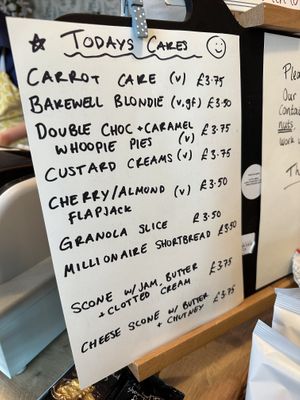 TODAYS CAKES
CARROT CAKE (v) £3.75
BAKEWELL BLONDIE (v,gf) £3.50
DOUBLE CHOC + CARAMEL £3.75
WHOOPIE PIES (v)
CUSTARD CREAMS (v) £3.75
CHERRY/ALMOND (v) £3.50
FLAPJACK
GRANOLA SLICE £3.50
MILLIONAIRE SHORTBREAD £3.50
SCONE W/ JAM, BUTTER £3.75
+ CLOTTED CREAM
CHEESE SCONE W/ BUTTER £3.75
+ CHUTNEY
Our
nuts
work